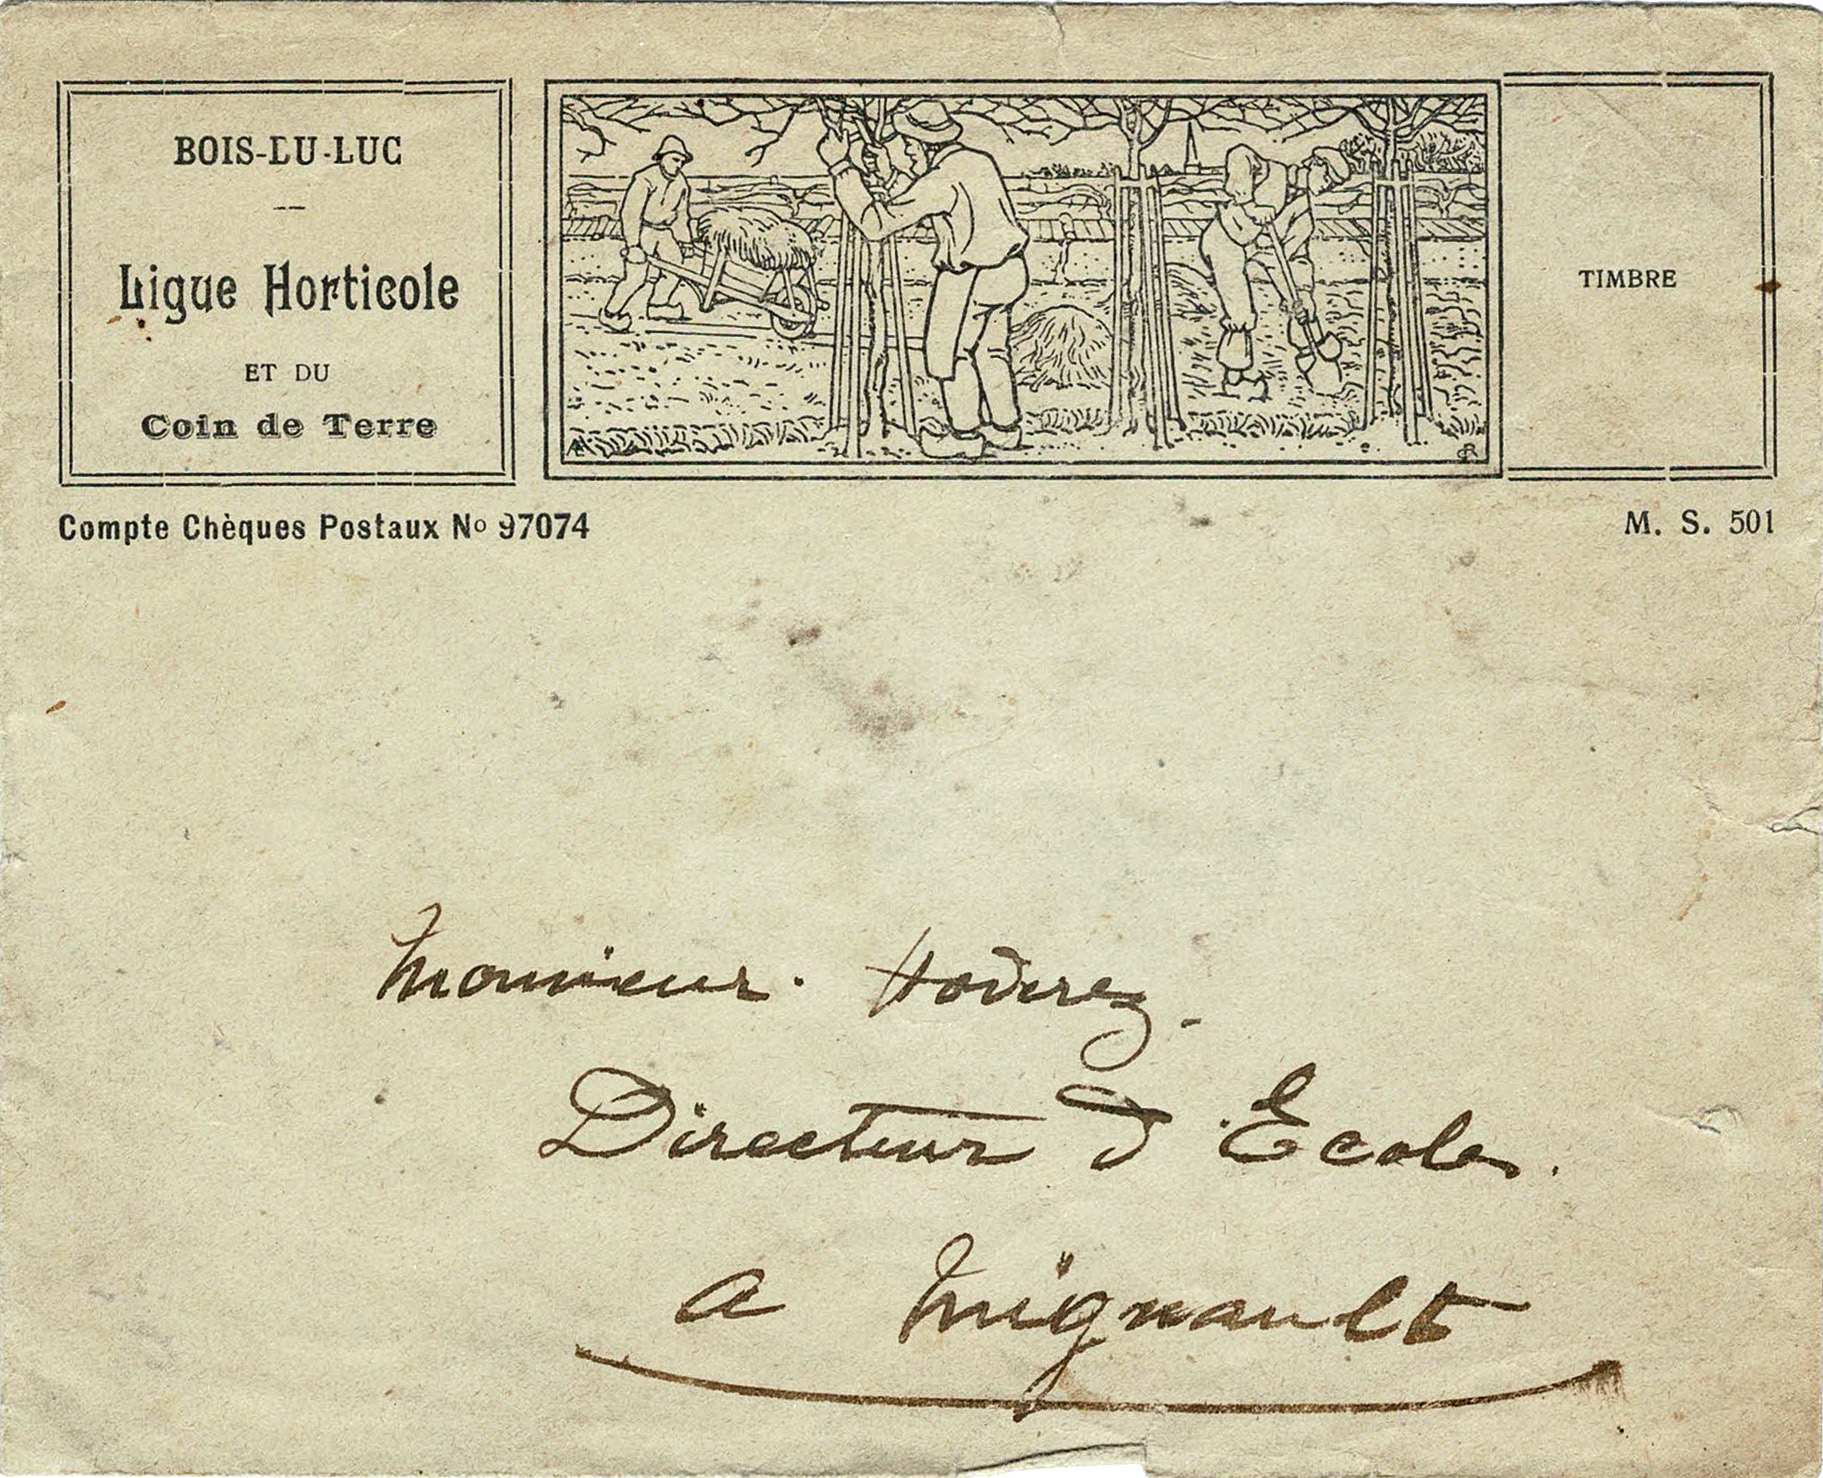 BOIS-DU-LUC
Ligue Horticole
ET DU
Coin de Terre
TIMBRE
Compte Chèques Postaux No 97074
M. S. 501
Monsieur.
Directeur d'Ecole.
a Mignault